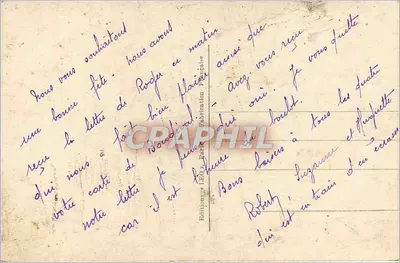 nous vous souhaitons
une bonne fête nous avons
reçu la lettre de Roger ce matin
qui nous a fait bien plaisir ainsi que
votre carte de
notre lettre je pense que oui. Je vous quitte
car il est l'heure du boulot.
Avez-vous reçu
Bons baisers à tous les quatre
Robert Suzanne et Huguette
qui est en train d'en écraser
CRAPHIL.com
Editions LEO